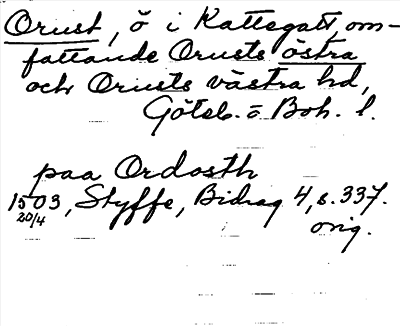 Orust, ö i Kattegatt, om-
fattande Orusts östra
och Orusts västra hd,
Göteb. o Boh. l.
paa Ordosth
1503, Styffe, Bidrag 4, s. 337.
20/4 orig.